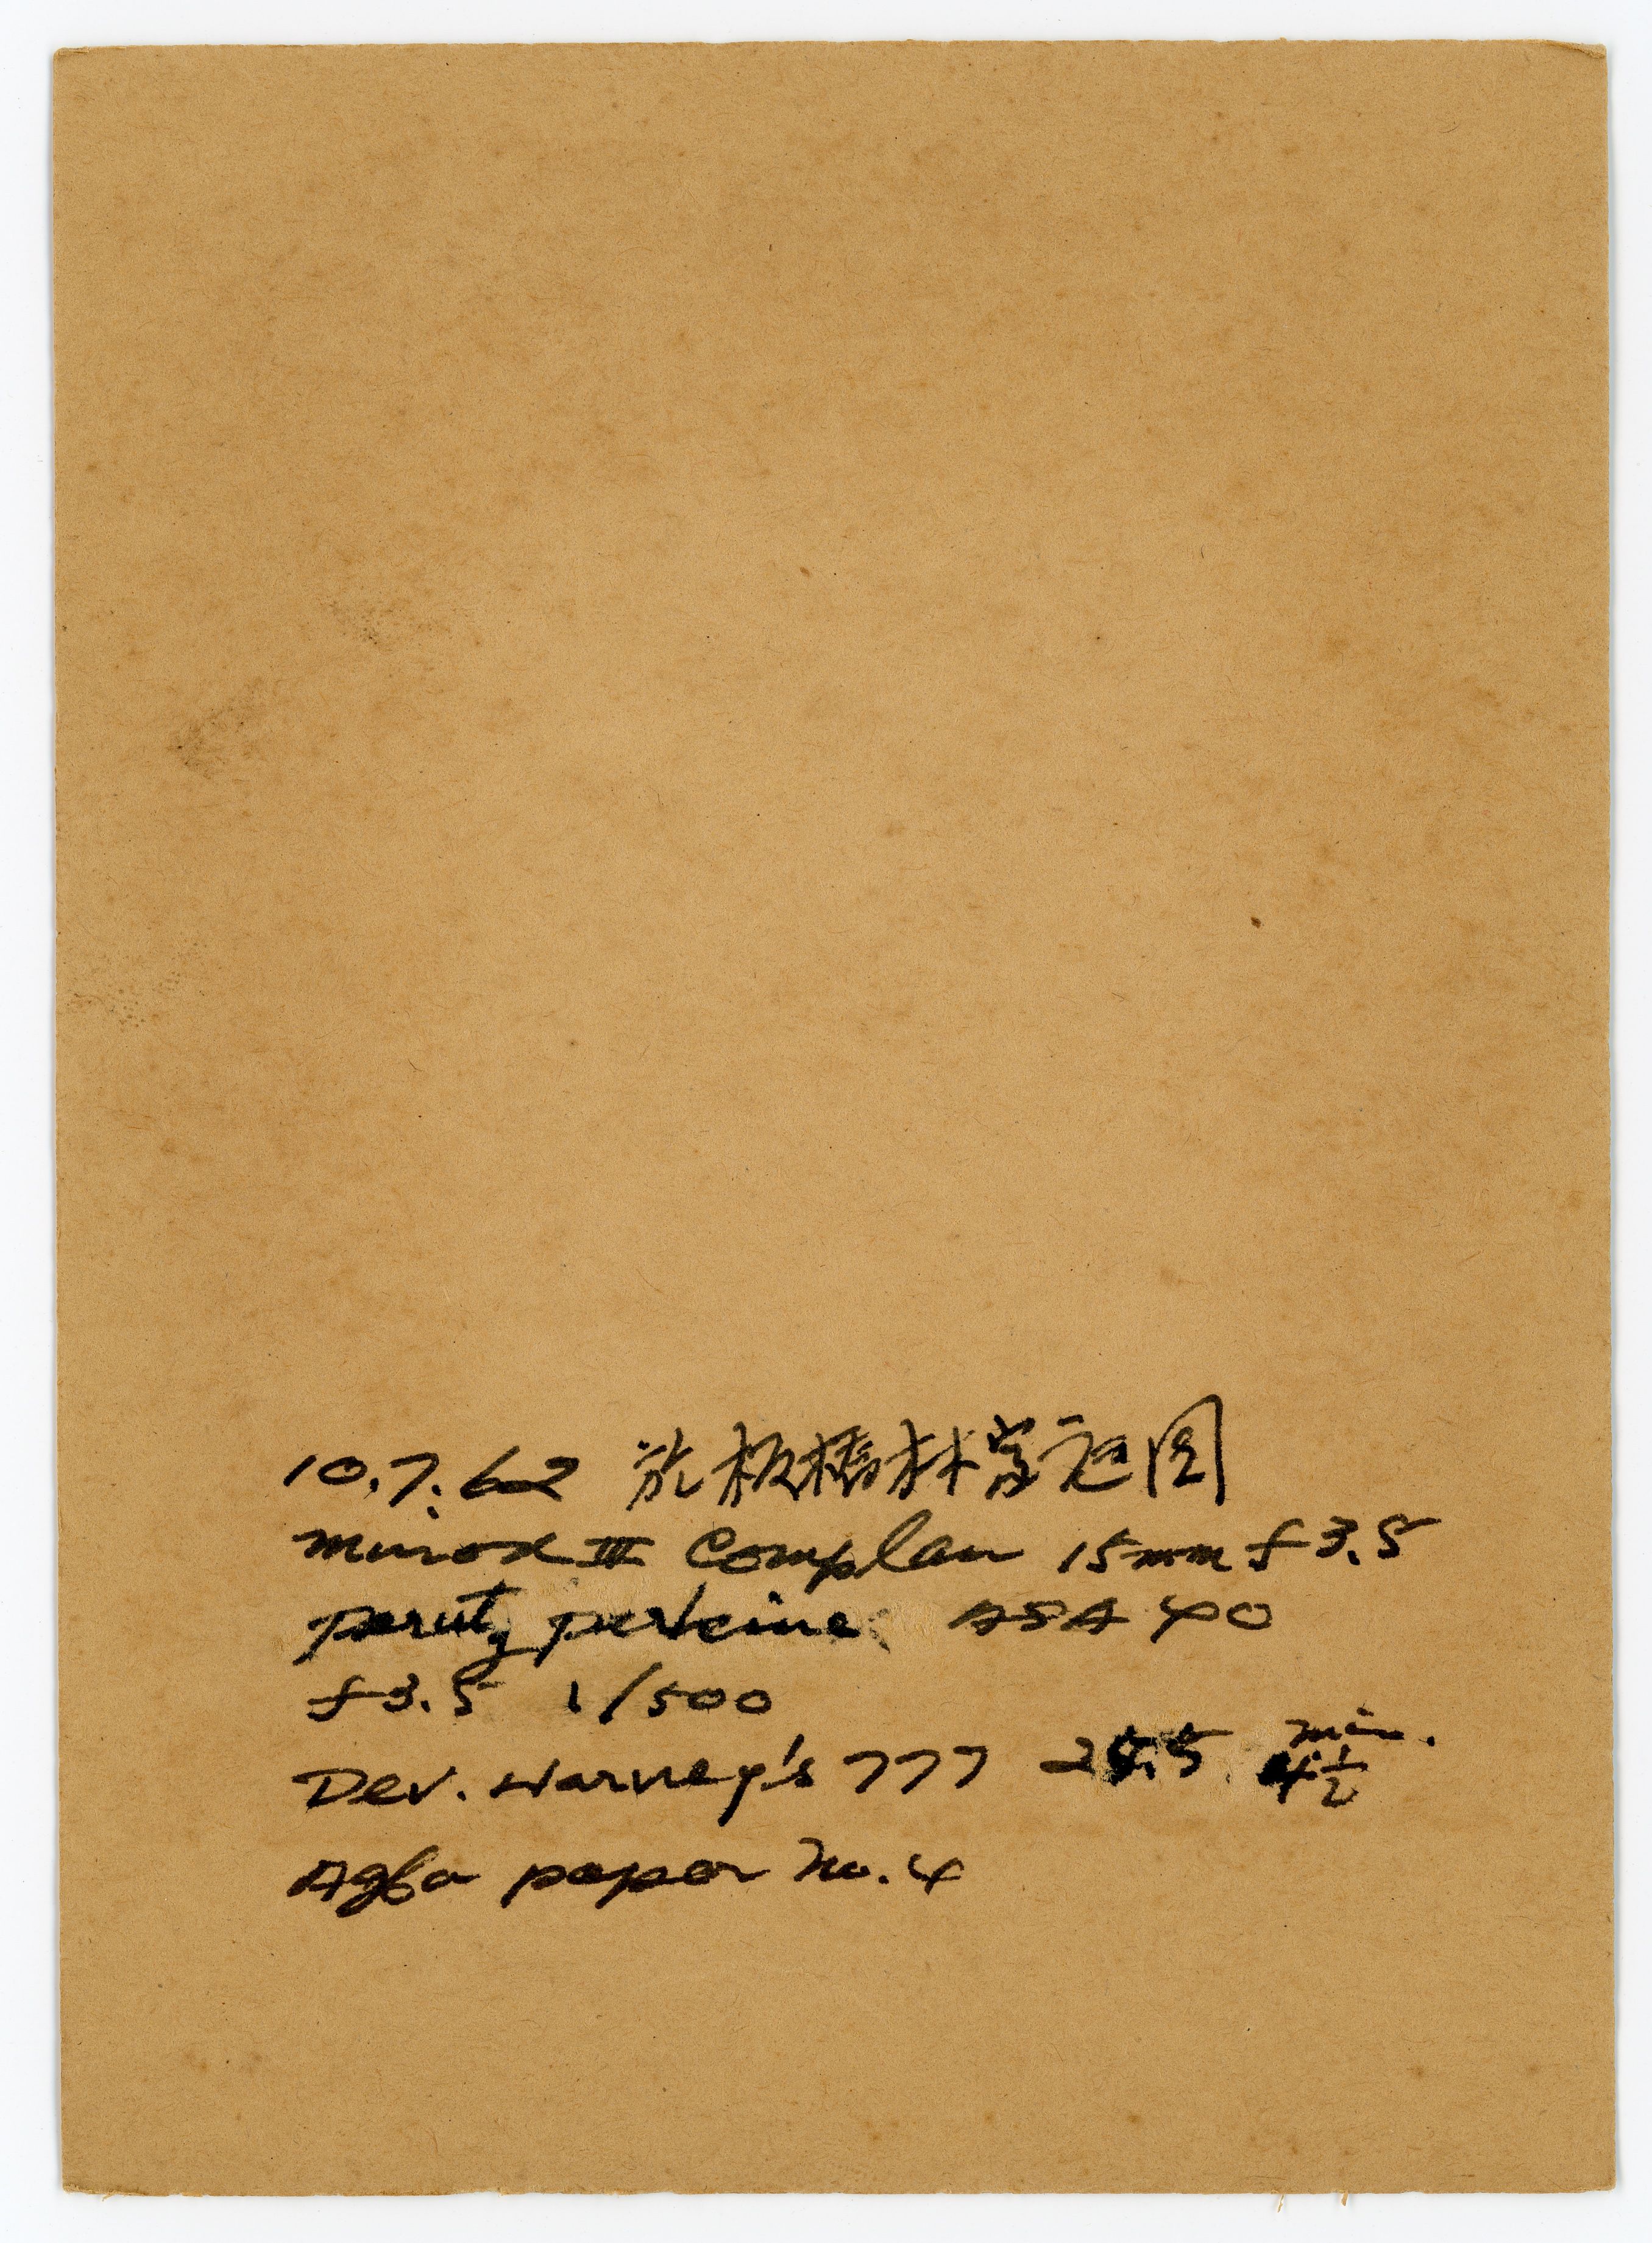 10.7.62 於板橋林家花園
minox III Complan 15mm f 3.5
perutz perkine ASA 40
f 3.5 1/500
Dev. Harvey's 777 min. 4 1/2
Agfa paper No. 4